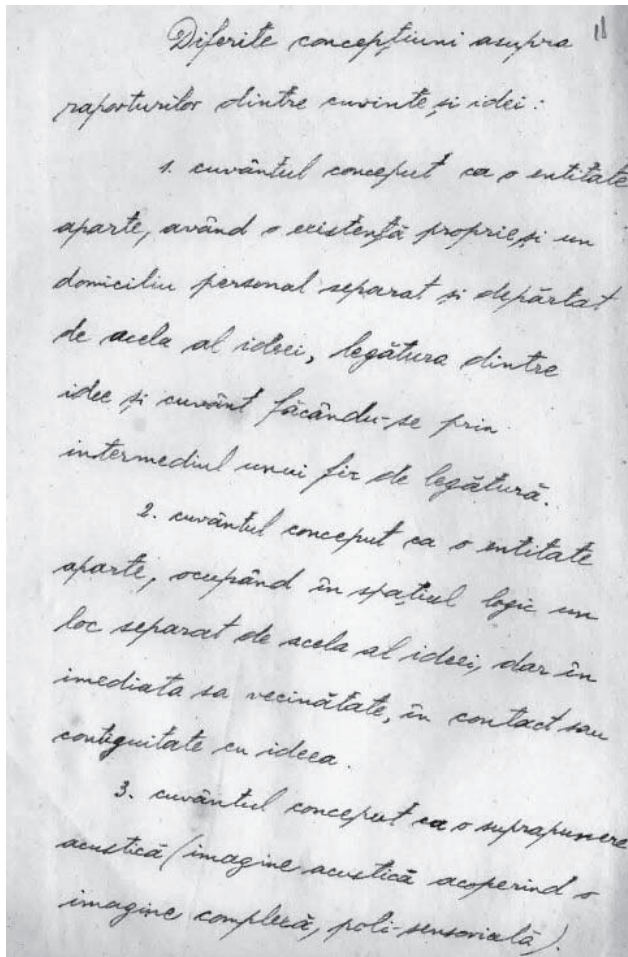 11
Diferite concepțiuni asupra
raporturilor dintre cuvinte și idei:
1. cuvântul conceput ca o entitate
aparte, având o existență proprie și un
domiciliu personal separat și depărtat
de acela al ideei, legătura dintre
idee și cuvânt făcându-se prin
intermediul unui fir de legătură.
2. cuvântul conceput ca o entitate
aparte, ocupând în spațiul logic un
loc separat de acela al ideei, dar în
imediata sa vecinătate, în contact sau
contiguitate cu ideea.
3. cuvântul conceput ca o suprapunere
acustică (imagine acustică acoperind o
imagine complexă, poli-sensorială).